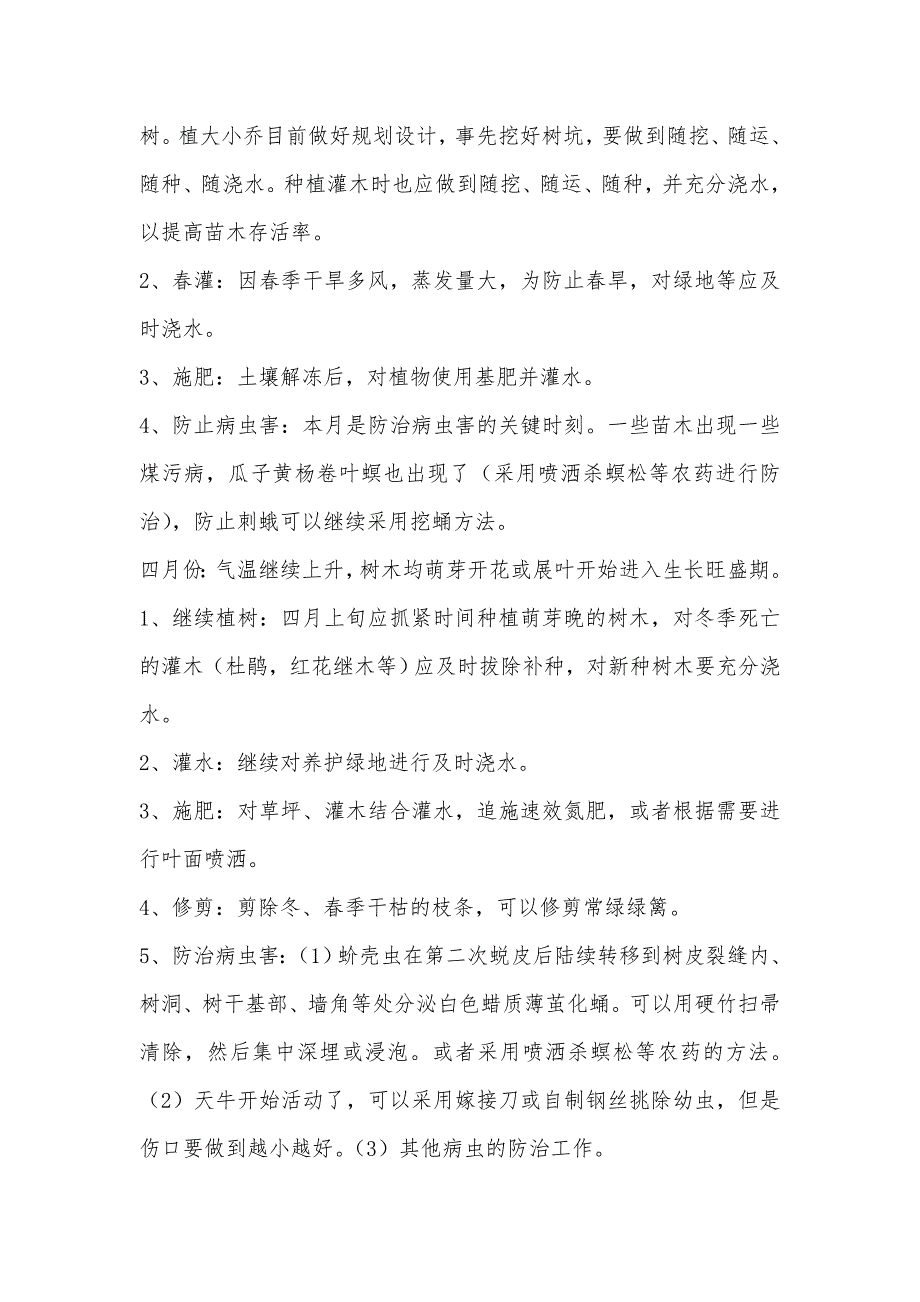 树。植大小乔目前做好规划设计，事先挖好树坑，要做到随挖、随运、
随种、随浇水。种植灌木时也应做到随挖、随运、随种，并充分浇水，
以提高苗木存活率。
2、春灌：因春季干旱多风，蒸发量大，为防止春旱，对绿地等应及
时浇水。
3、施肥：土壤解冻后，对植物使用基肥并灌水。
4、防止病虫害：本月是防治病虫害的关键时刻。一些苗木出现一些
煤污病，瓜子黄杨卷叶螟也出现了（采用喷洒杀螟松等农药进行防
治），防止刺蛾可以继续采用挖蛹方法。
四月份：气温继续上升，树木均萌芽开花或展叶开始进入生长旺盛期。
1、继续植树：四月上旬应抓紧时间种植萌芽晚的树木，对冬季死亡
的灌木（杜鹃，红花继木等）应及时拔除补种，对新种树木要充分浇
水。
2、灌水：继续对养护绿地进行及时浇水。
3、施肥：对草坪、灌木结合灌水，追施速效氮肥，或者根据需要进
行叶面喷洒。
4、修剪：剪除冬、春季干枯的枝条，可以修剪常绿绿篱。
5、防治病虫害：（1）蚧壳虫在第二次蜕皮后陆续转移到树皮裂缝内、
树洞、树干基部、墙角等处分泌白色蜡质薄茧化蛹。可以用硬竹扫帚
清除，然后集中深埋或浸泡。或者采用喷洒杀螟松等农药的方法。
（2）天牛开始活动了，可以采用嫁接刀或自制钢丝挑除幼虫，但是
伤口要做到越小越好。（3）其他病虫的防治工作。